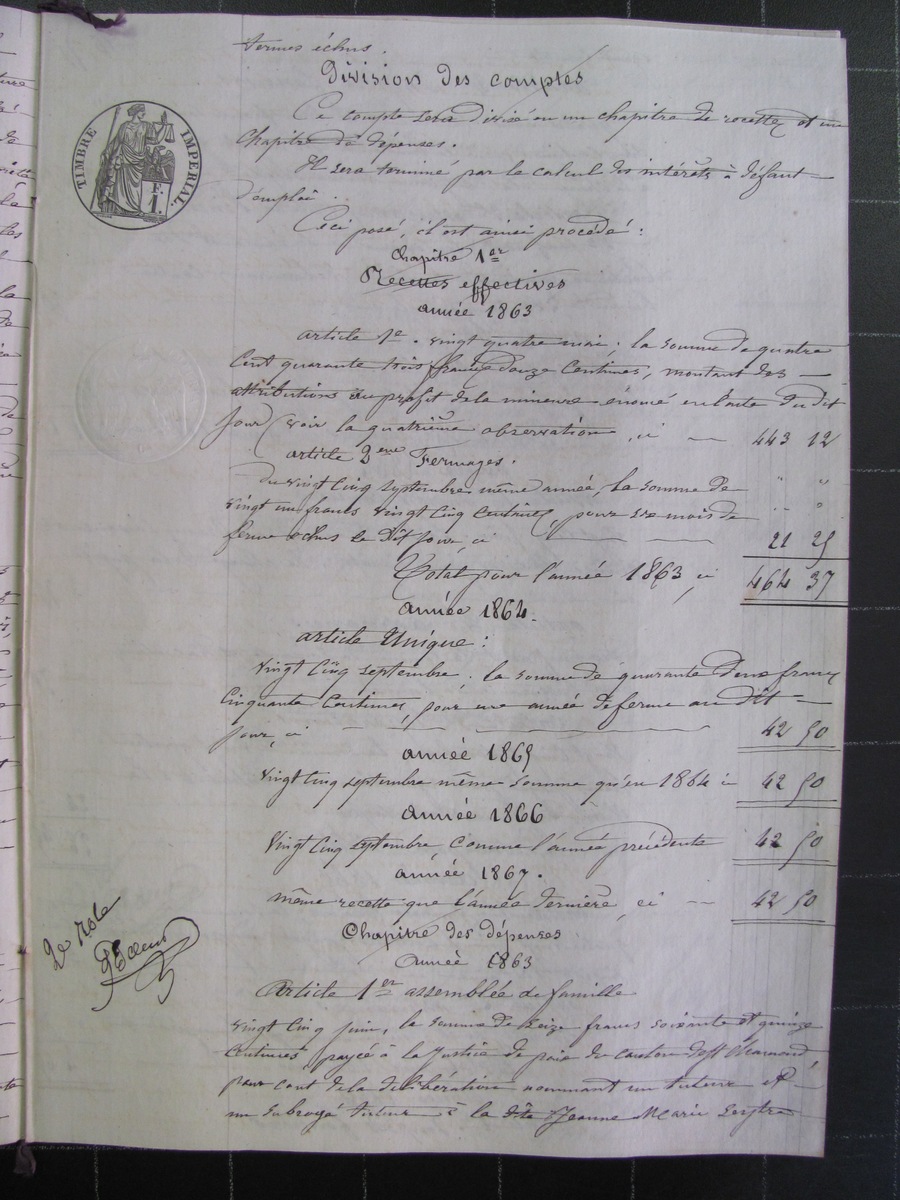 termes échus.
Division des comptes
Ce compte sera divisé en un chapitre de recettes et un
chapitre de dépenses.
Il sera terminé par le calcul des intérêts à défaut
d'emploi.
Ceci posé, il est ainsi procédé :
TIMBRE IMPÉRIAL.
F.
1.
Chapitre 1er
Recettes effectives
année 1863
article 1e. vingt quatre mai, la somme de quatre
cent quarante trois francs douze centimes, montant des
attributions au profit de la mineure énoncé en l'acte du dit
jour (voir la quatrième observation, ci 443 12
article 2eme Fermages.
Du vingt cinq septembre même année, la somme de " "
vingt un francs vingt cinq centimes, pour six mois de " "
ferme échus le dit jour, ci 21 25
Total pour l'année 1863, ci 464 37
année 1864.
article Unique :
vingt cinq septembre. la somme de quarante deux francs
cinquante centimes, pour une année de ferme au dit
jour, ci 42 50
année 1865
vingt cinq septembre même somme qu'en 1864 ci 42 50
année 1866
vingt cinq septembre comme l'année précédente 42 50
année 1867.
même recette que l'année dernière, ci 42 50
2e Role
Chapitre des dépenses
année 1863
Article 1er assemblée de famille
vingt cinq juin, la somme de seize francs soixante et quinze
centimes, payée à la Justice de paix du canton de St Chamond,
pour cout de la délibération nommant un tuteur et
un subrogé tuteur à la dite Jeanne Marie